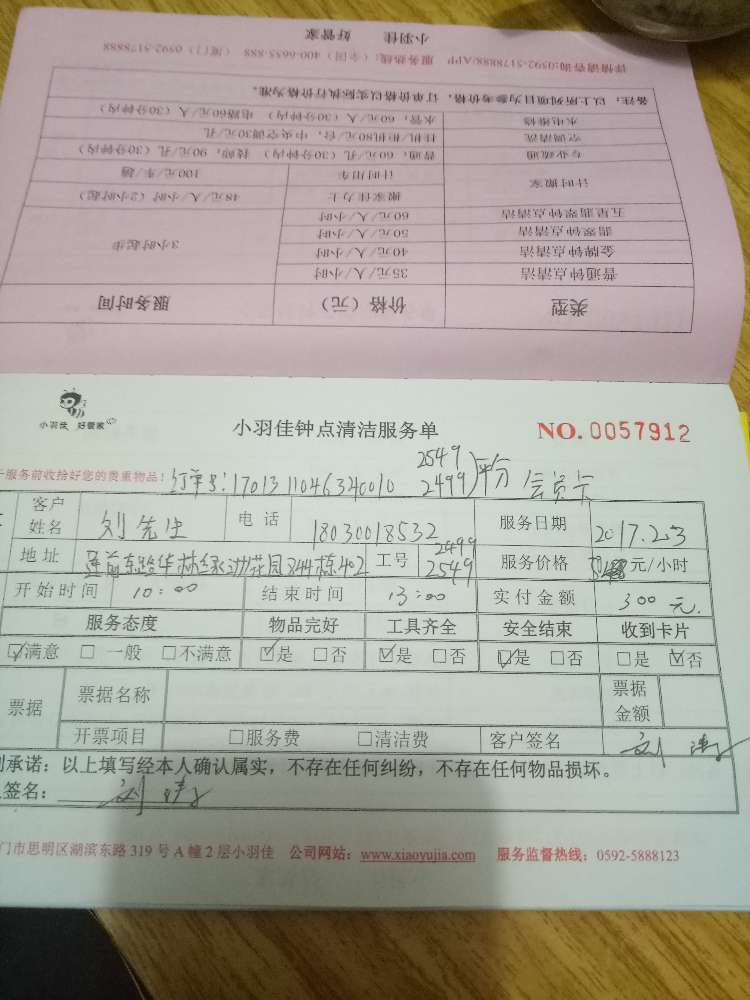 小羽佳 好管家
详情请咨询:0592-5178888/APP 服务热线:(全国)400-6655-888 (厦门)0592-5178888
备注:以上所列项目为参考价格,订单价格以实际执行价格为准。
水电维修 水管,60元/人(30分钟内) 电路60元/人(30分钟内)
空调清洗 挂机/柜机80元/台,中央空调30元/孔
专业疏通 普通,60元/孔(30分钟内) 技师,90元/孔(30分钟内)
计时搬家 计时用车 100元/车/趟
搬家佳力士 48元/人/小时(2小时起)
五星翡翠钟点清洁 60元/人/小时
翡翠钟点清洁 50元/人/小时
金牌钟点清洁 40元/人/小时 3小时起步
普通钟点清洁 35元/人/小时
类型 价格(元) 服务时间
小羽佳 好管家
小羽佳钟点清洁服务单 NO.0057912
于服务前收拾好您的贵重物品!
订单号:1701311046340010 2549 2499 平分 会员卡
客户姓名 刘先生 电话 18030018532 服务日期 2017.2.3
地址 莲前东路华林 花园 栋402 工号 2499 2549 服务价格 元/小时
开始时间 10:00 结束时间 13:00 实付金额 300元.
服务态度 物品完好 工具齐全 安全结束 收到卡片
☑满意 □一般 □不满意 ☑是 □否 ☑是 □否 ☑是 □否 □是 ☑否
票据 票据名称 票据金额
开票项目 □服务费 □清洁费 客户签名 刘
承诺:以上填写经本人确认属实,不存在任何纠纷,不存在任何物品损坏。
签名: 刘
门市思明区湖滨东路319号A幢2层小羽佳 公司网站:www.xiaoyujia.com 服务监督热线:0592-5888123